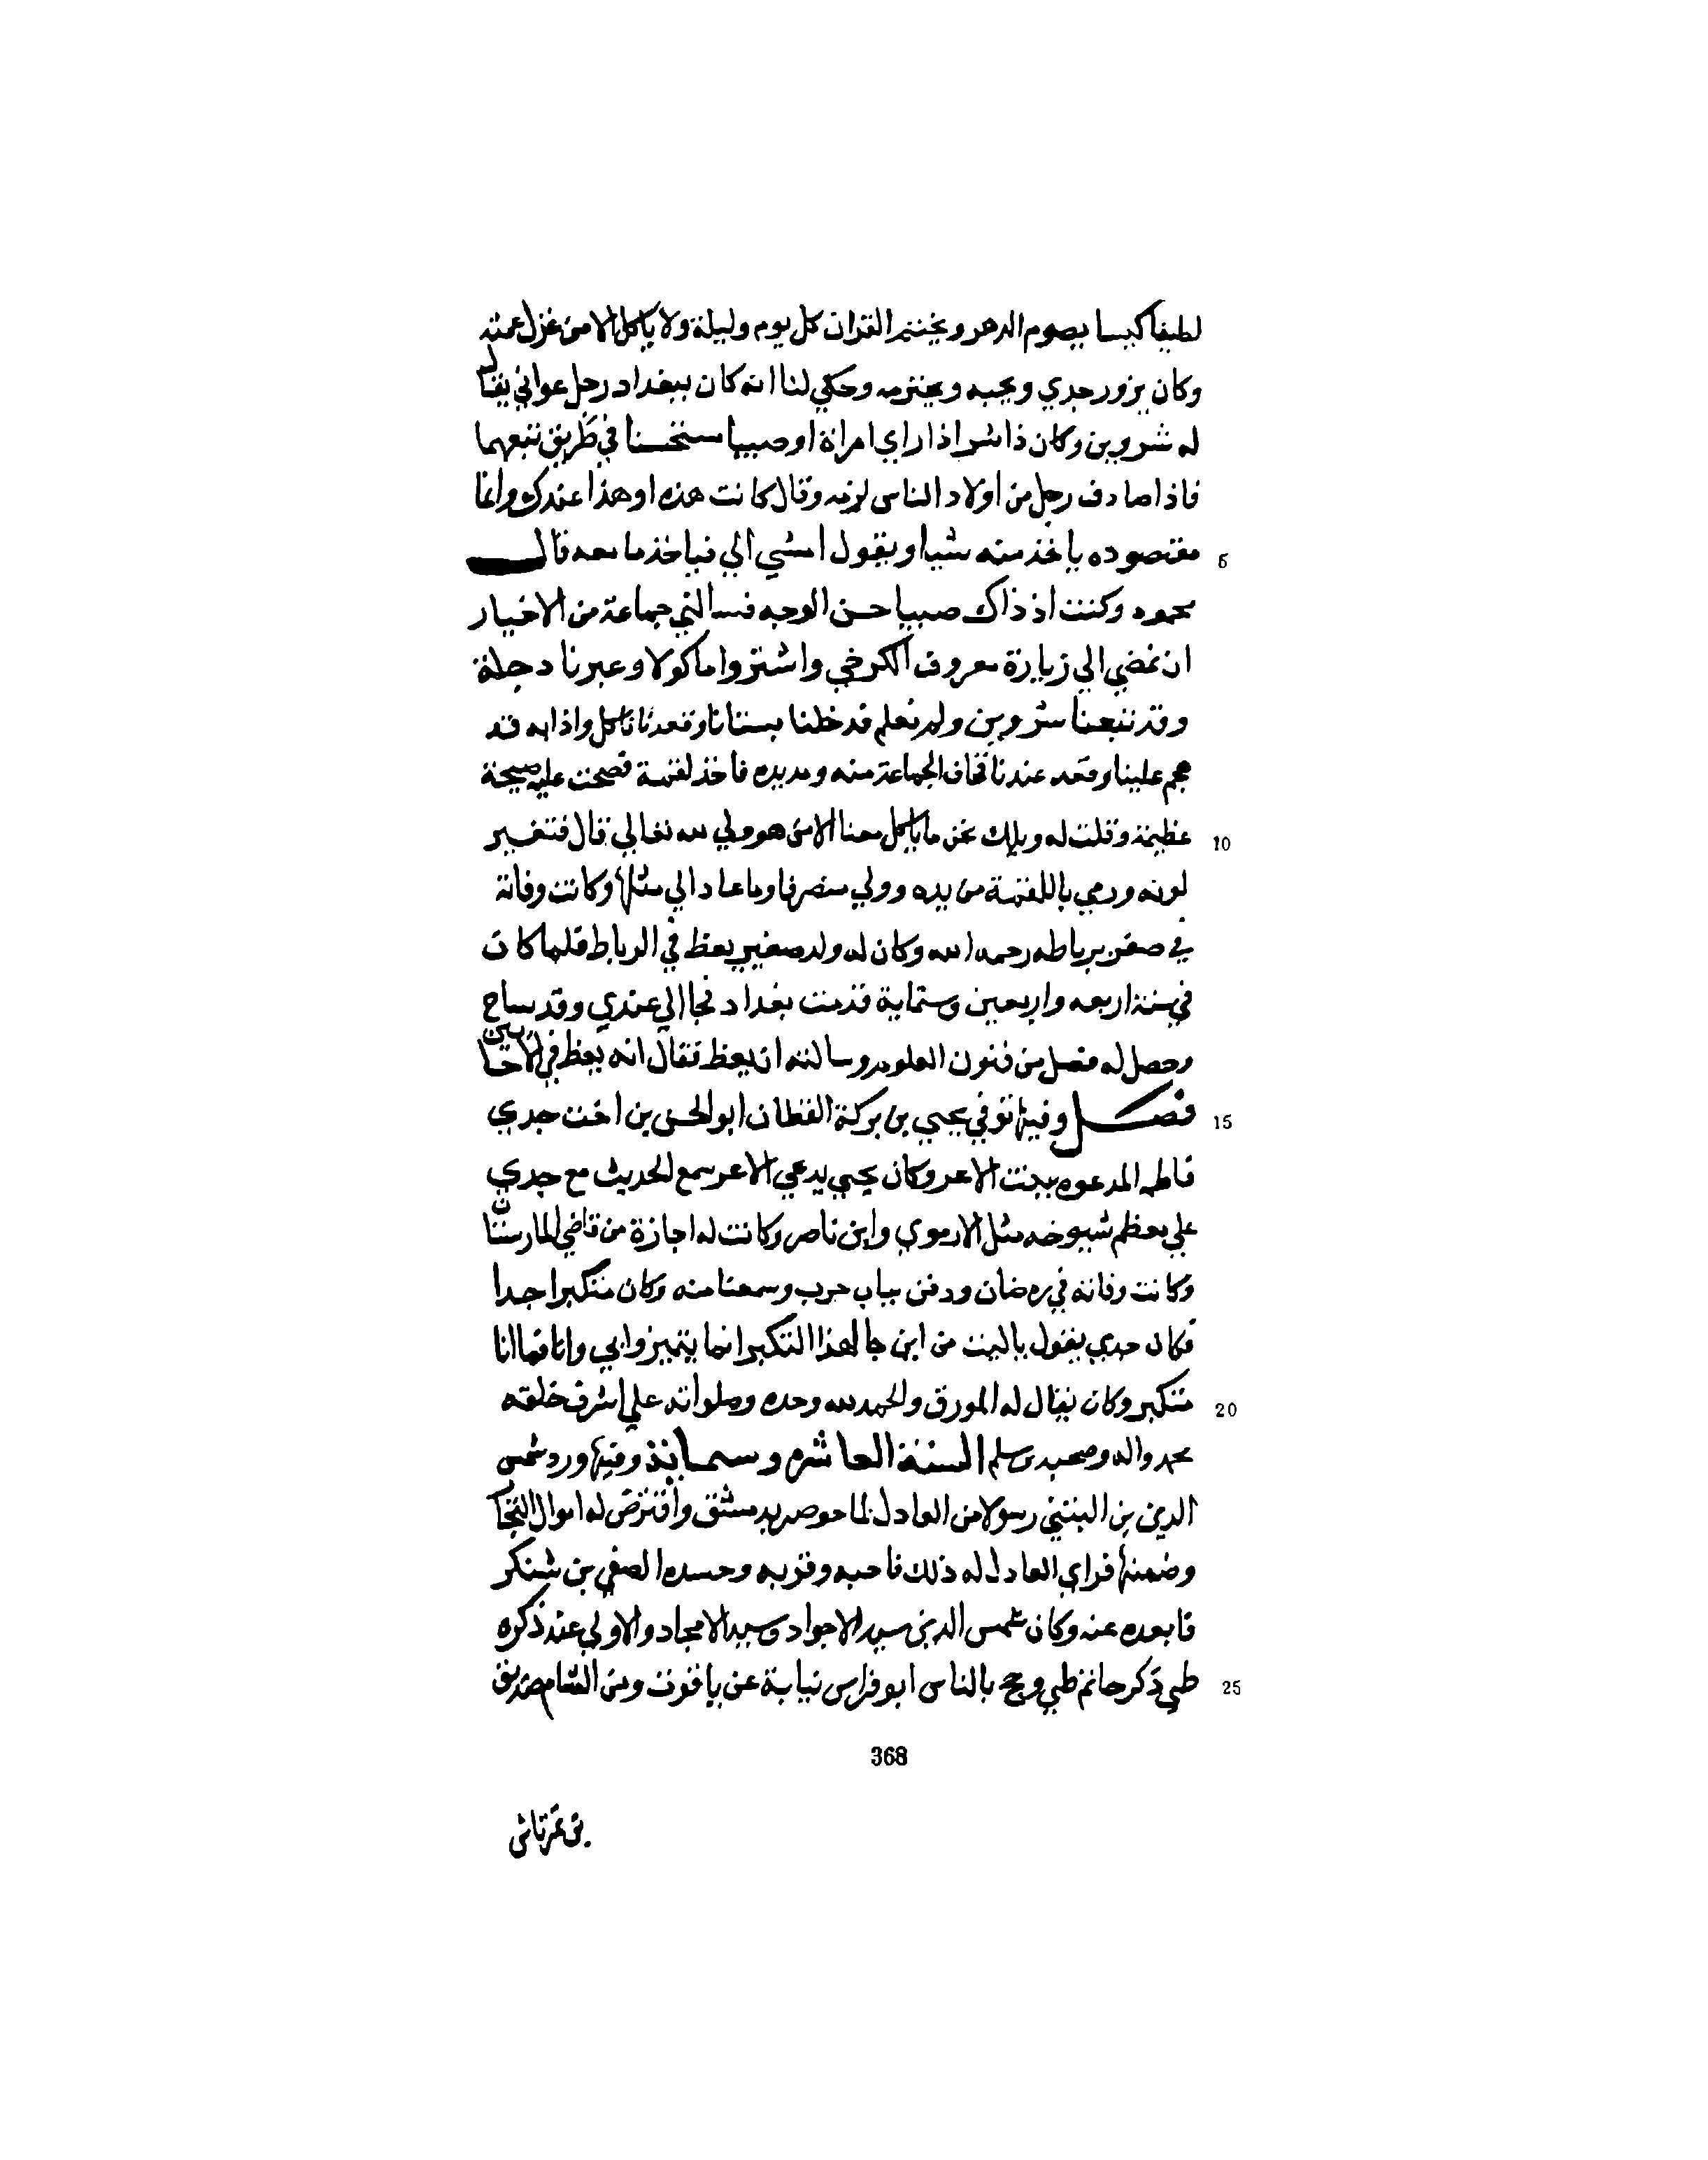 لطيفا كيسا يصوم الدهر ويختم القران كل يوم وليلة ولا ياكل الا من غزل عمته
وكان يزور جدي ويحبه ويحترمه وحكي لنا انه كان ببغداد رجل عواني يقال
له شروين وكان ذا شر اذا راي امراة او صبيا مستحسنا في طريق تبعهما
فاذا صادف رجل من اولاد الناس لزمه وقال كانت هذه او هذا عندك وانما
5 مقصوده ياخذ منه شيا ويقول امشي الي فياخذ ما معه قال
محمود وكنت اذ ذاك صبيا حسن الوجه فسالني جماعة من الاخيار
ان نمضي الي زيارة معروف الكرخي واشتروا ماكولا وعبرنا دجلة
وقد تبعنا شروين ولم نعلم فدخلنا بستانا وقعدنا ناكل واذا به قد
هجم علينا وقعد عندنا فخاف الجماعة منه ومد يده فاخذ لقمة فصحت عليه صيحة
10 عظيمة وقلت له ويلك نحن ما ياكل معنا الا من هو ولي لله تعالي قال فتغير
لونه ورمي باللقمة من يده وولي منصرفا وما عاد الي مثلها وكانت وفاته
في صفر برباطه رحمه الله وكان له ولد صغير يعظ في الرباط فلما كان
في سنة اربعه واربعين وستماية قدمت بغداد فجا الي عندي وقد ساح
وحصل له فصل من فنون العلوم وسالته ان يعظ فقال انه يعظ في الاحايين
15 فصل وفيها توفي يحيي بن بركة القطان ابو الحسن بن اخت جدي
فاطمه المدعوه ببنت الاعر وكان يحيي يدعي الاعر سمع الحديث مع جدي
علي معظم شيوخه مثل الارموي وابن ناصر وكانت له اجازة من قاضي المارستان
وكانت وفاته في رمضان ودفن بباب حرب وسمعنا منه وكان متكبرا جدا
فكان جدي يقول ياليت من اين جا لهذا التكبر انما يتميز وابي وانا فما انا
20 متكبر وكان يقال له المورق والحمد لله وحده وصلواته علي اشرف خلقه
محمد واله وصحبه وسلم السنة العاشره وستمائة وفيها ورد شمس
الدين بن البنتي رسولا من العادل لما حوصر بدمشق واقترض له اموال التجار
وضمنها فراي العادل له ذلك فاحبه وقربه وحسده الصفي بن شكر
فابعده عنه وكان شمس الدين سيد الاجواد وسيد الامجاد والاولي عند ذكره
25 طي ذكر حاتم طي وحج بالناس ابو فراس نيابة عن ياقوت ومن الشام صديق
368
بن تمرتاش